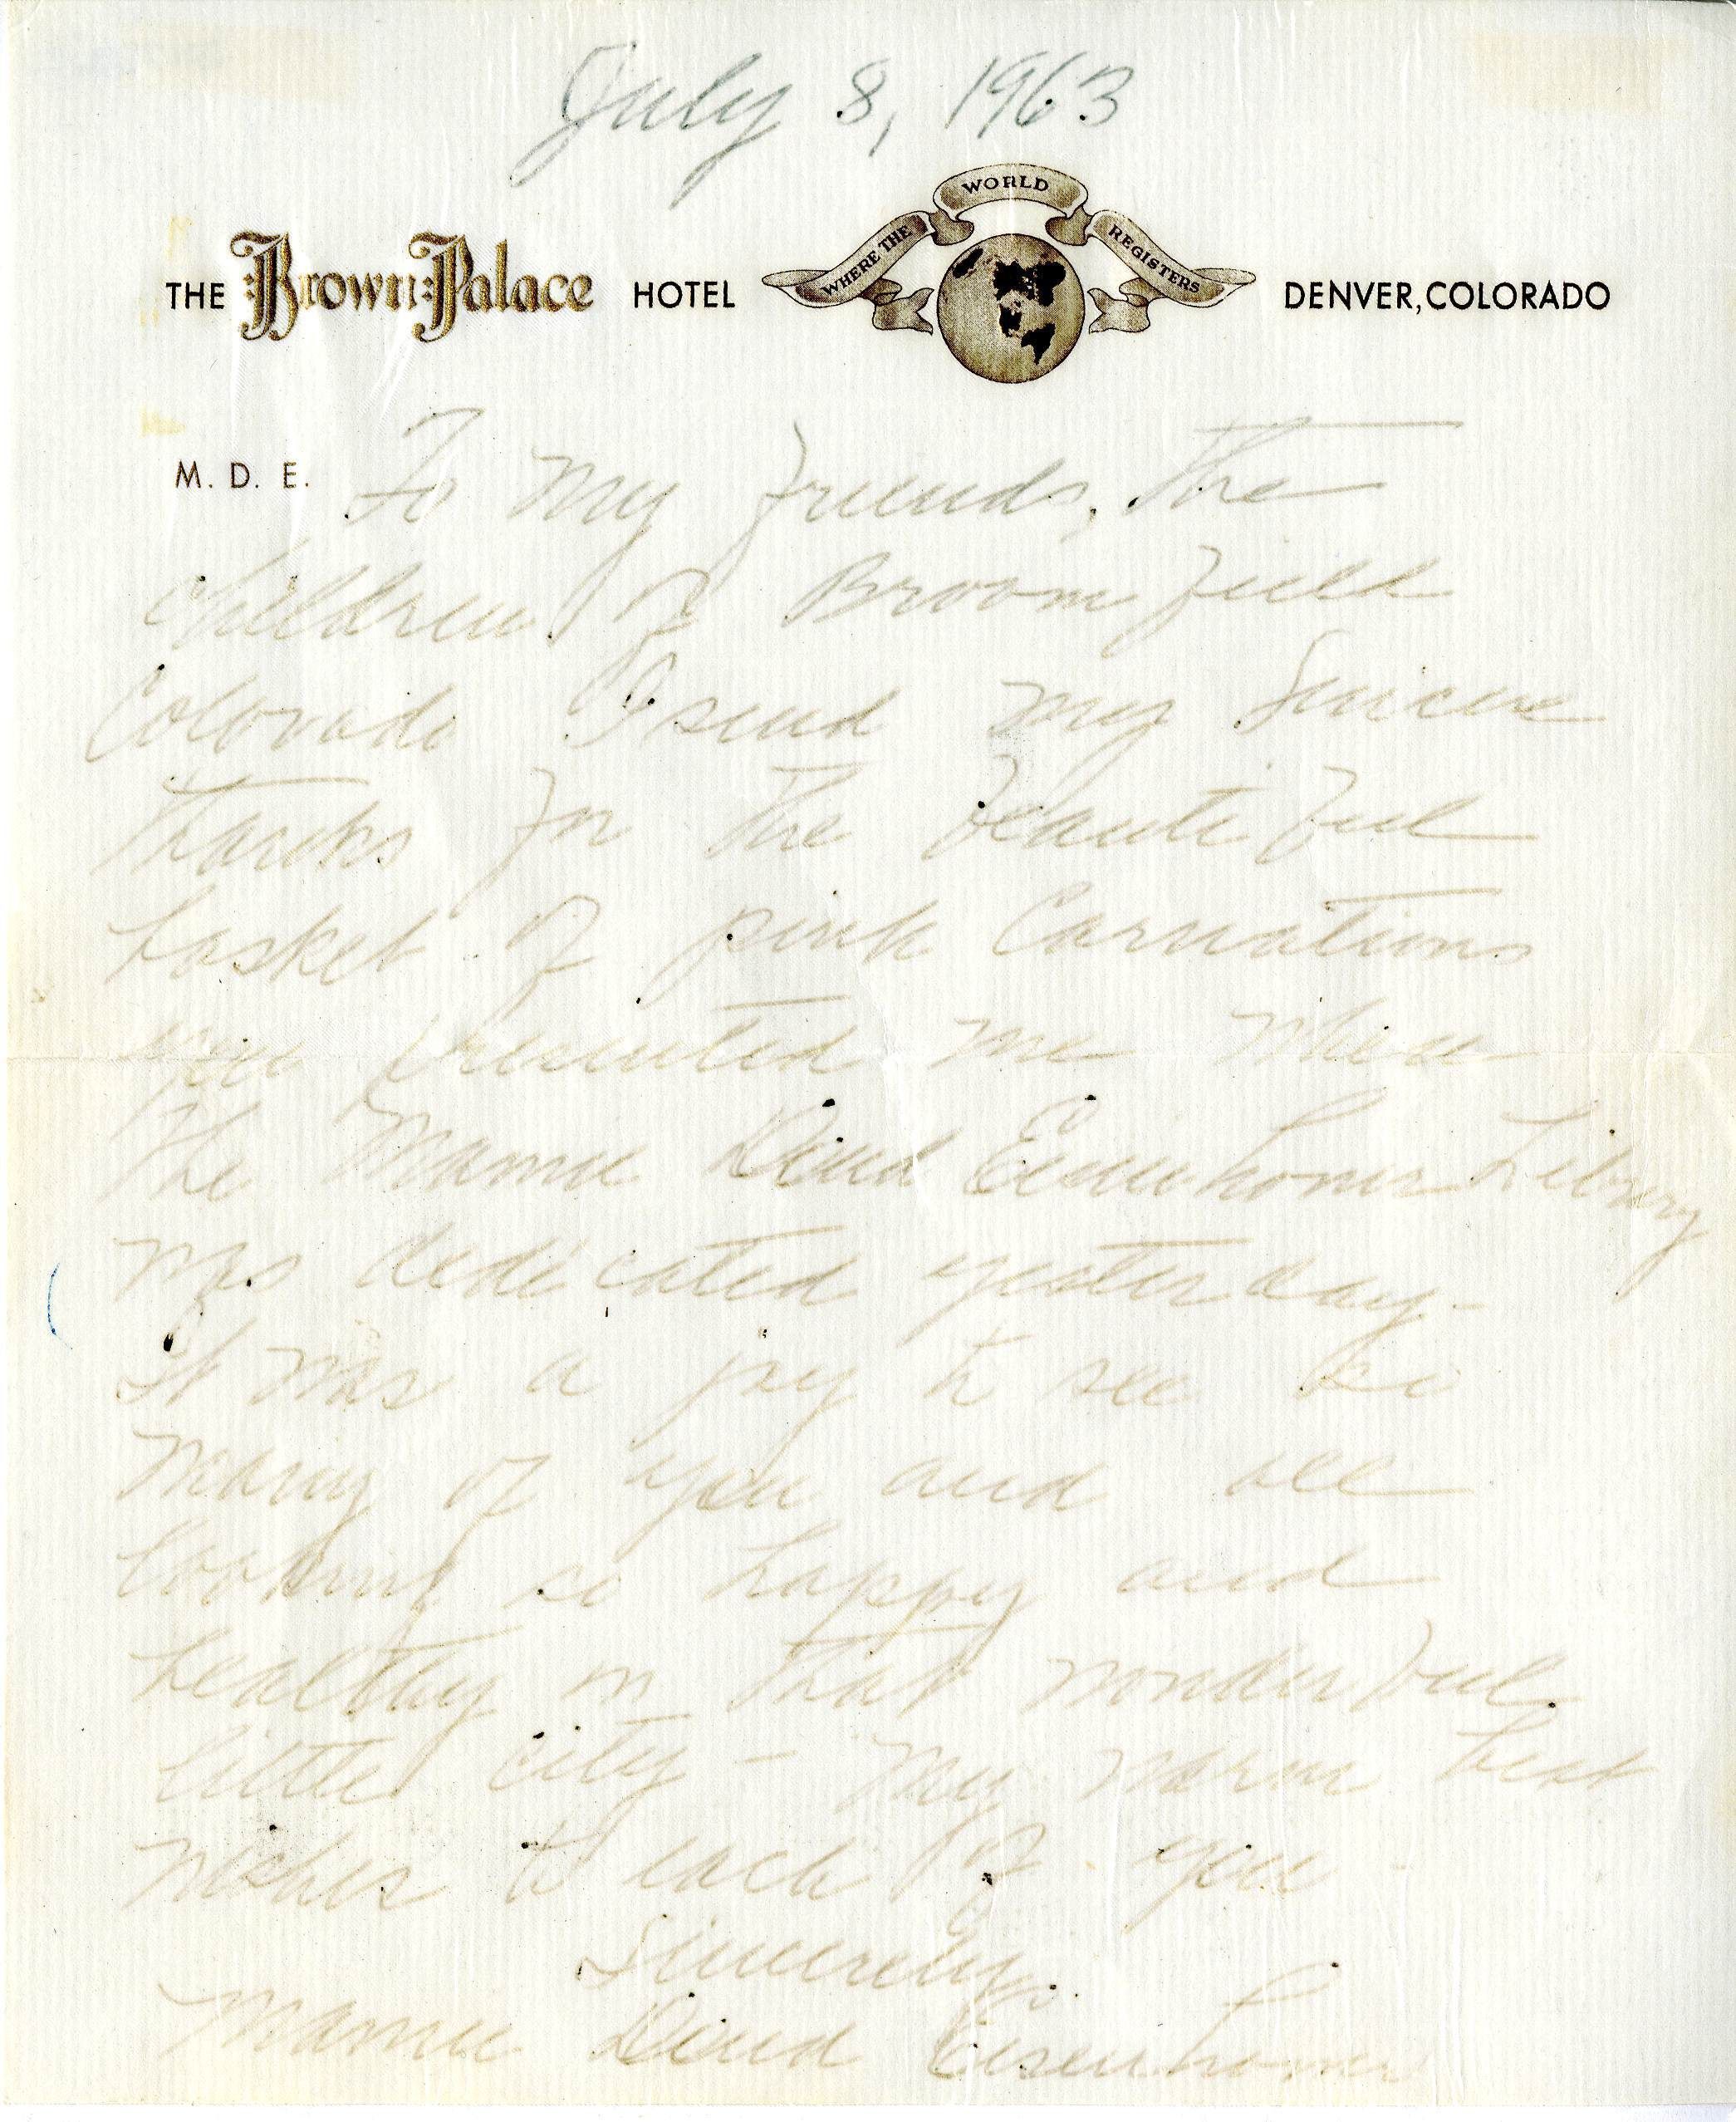 July 8, 1963
WHERE THE WORLD REGISTERS
THE Brown Palace HOTEL DENVER, COLORADO
M. D. E.
To my friends, the
children of Broomfield
Colorado I send my sincere
thanks for the beautiful
basket of pink Carnations
you presented me when
the Mamie Doud Eisenhower Library
was dedicated yesterday-
it was a joy to see so
many of you and all
looking so happy and
healthy in that wonderful
little city - My warm best
wishes to each of you -
Sincerely,
Mamie Doud Eisenhower